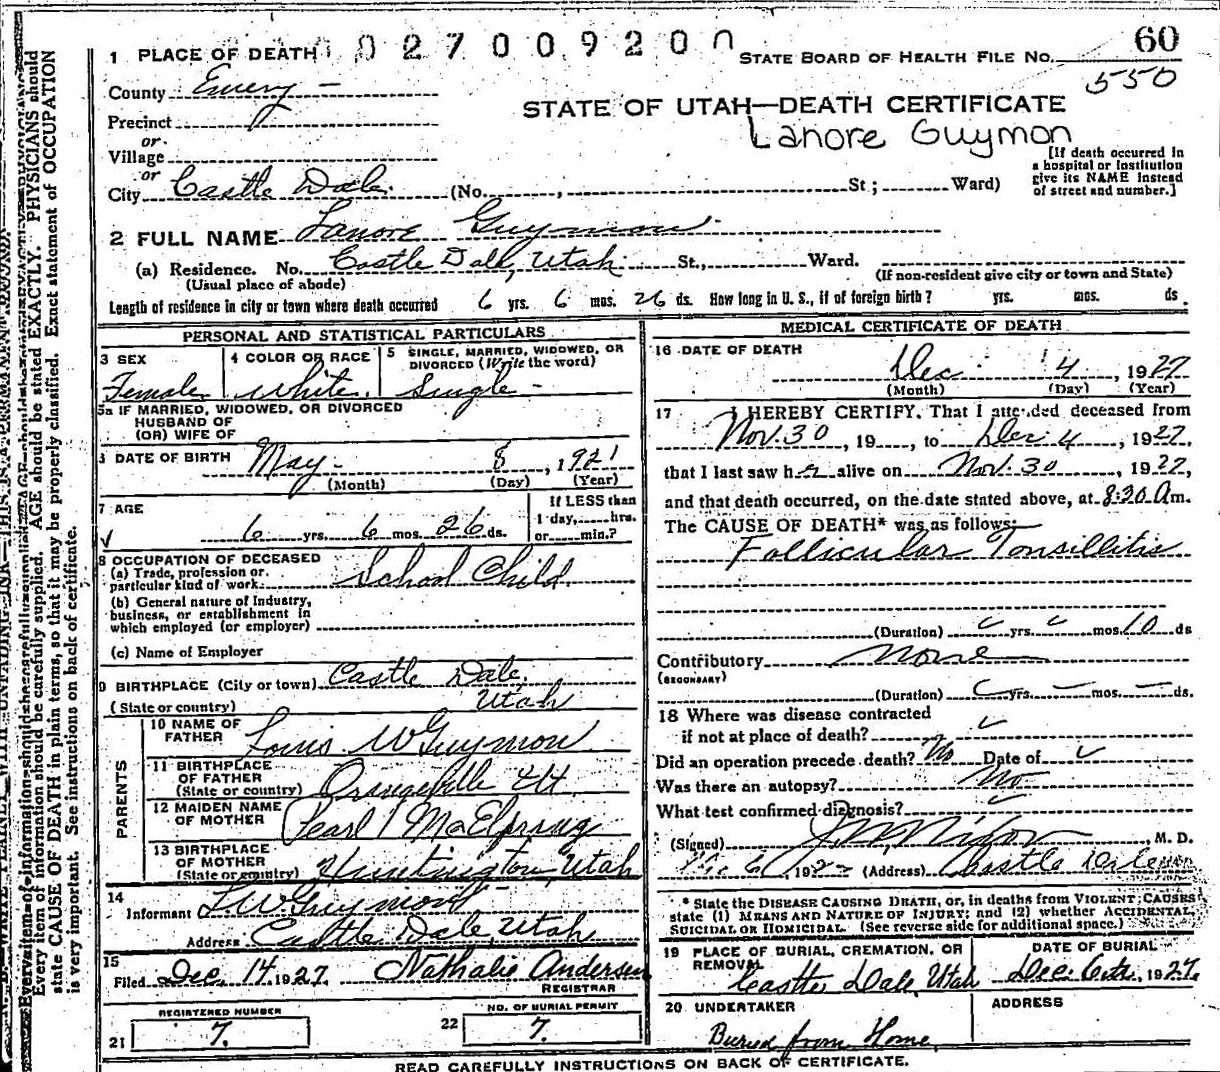 1 PLACE OF DEATH 0 2 7 0 0 9 2 0 0
STATE BOARD OF HEALTH FILE NO. 60
550
County Emery
STATE OF UTAH—DEATH CERTIFICATE
Lanore Guymon
Precinct
or
Village
or
City Castle Dale (No. , St; Ward)
[If death occurred in
a hospital or institution
give its NAME instead
of street and number.]
2 FULL NAME Lanore Guymon
(a) Residence. No. Castle Dale, Utah St., Ward.
(Usual place of abode) (If non-resident give city or town and State)
Length of residence in city or town where death occurred 6 yrs. 6 mos. 26 ds. How long in U. S., if of foreign birth? yrs. mos. ds.
PERSONAL AND STATISTICAL PARTICULARS
3 SEX
Female
4 COLOR OR RACE
White
5 SINGLE, MARRIED, WIDOWED, OR
DIVORCED (Write the word)
Single
5a IF MARRIED, WIDOWED, OR DIVORCED
HUSBAND OF
(OR) WIFE OF
DATE OF BIRTH May 8, 1921
(Month) (Day) (Year)
7 AGE
6 yrs. 6 mos. 26 ds.
If LESS than
1 day, hrs.
or min.?
8 OCCUPATION OF DECEASED
(a) Trade, profession or
particular kind of work School Child
(b) General nature of Industry,
business, or establishment in
which employed (or employer)
(c) Name of Employer
9 BIRTHPLACE (City or town) Castle Dale,
(State or country) Utah
PARENTS
10 NAME OF
FATHER Louis W Guymon
11 BIRTHPLACE
OF FATHER
(State or country) Orangeville Ut
12 MAIDEN NAME
OF MOTHER Pearl McElprang
13 BIRTHPLACE
OF MOTHER
(State or country) Huntington, Utah
14
Informant L. W Guymon
Address Castle Dale, Utah
15
Filed Dec. 14 1927. Nathalie Andersen
REGISTRAR
REGISTERED NUMBER
21 7.
NO. OF BURIAL PERMIT
22 7.
MEDICAL CERTIFICATE OF DEATH
16 DATE OF DEATH
Dec 4, 1927
(Month) (Day) (Year)
17 I HEREBY CERTIFY, That I attended deceased from
Nov. 30, 19, to Dec 4, 1927,
that I last saw her alive on Nov. 30, 1927,
and that death occurred, on the date stated above, at 8:30 A m.
The CAUSE OF DEATH* was as follows:
Follicular Tonsillitis
(Duration) yrs. mos. 10 ds
Contributory None
(SECONDARY)
(Duration) yrs. mos. ds.
18 Where was disease contracted
if not at place of death?
Did an operation precede death? No Date of
Was there an autopsy? No
What test confirmed diagnosis?
(Signed) J. W. Nixon M. D.
6 192 (Address) Castle Dale
* State the DISEASE CAUSING DEATH, or, in deaths from VIOLENT CAUSES
state (1) MEANS AND NATURE OF INJURY; and (2) whether ACCIDENTAL,
SUICIDAL OR HOMICIDAL. (See reverse side for additional space.)
19 PLACE OF BURIAL, CREMATION, OR
REMOVAL
Castle Dale, Utah
DATE OF BURIAL
Dec. 6th, 1927.
20 UNDERTAKER
Buried from Home
ADDRESS
READ CAREFULLY INSTRUCTIONS ON BACK OF CERTIFICATE.
Every item of information should be carefully supplied. AGE should be stated EXACTLY. PHYSICIANS should
state CAUSE OF DEATH in plain terms, so that it may be properly classified. Exact statement of OCCUPATION
is very important. See instructions on back of certificate.